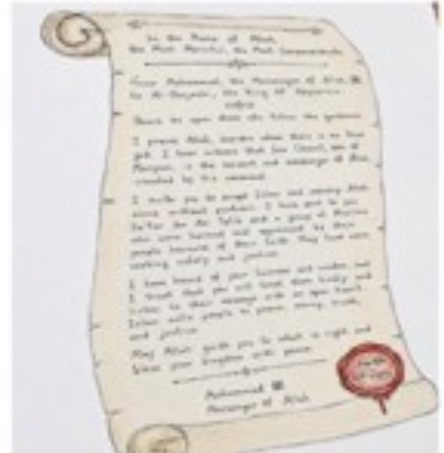 In the Name of Allah,
the Most Merciful, the Most Compassionate.
From Muhammad, the Messenger of Allah ﷺ
to Al-Najashi, the King of Abyssinia
Peace be upon those who follow the guidance.
I praise Allah, besides whom there is no true
god. I bear witness that Isa (Jesus), son of
Maryam, is the servant and messenger of Allah,
created by His command.
I invite you to accept Islam and worship Allah
alone without partners. I have sent to you
Ja'far ibn Abi Talib and a group of Muslims
who were harmed and oppressed by their
people because of their faith. They have come
seeking safety and justice.
I have heard of your fairness and wisdom, and
I trust that you will treat them kindly and
listen to their message with an open heart.
Islam calls people to peace, mercy, truth,
and justice.
May Allah guide you to what is right and
bless your kingdom with peace.
Muhammad ﷺ
Messenger of Allah